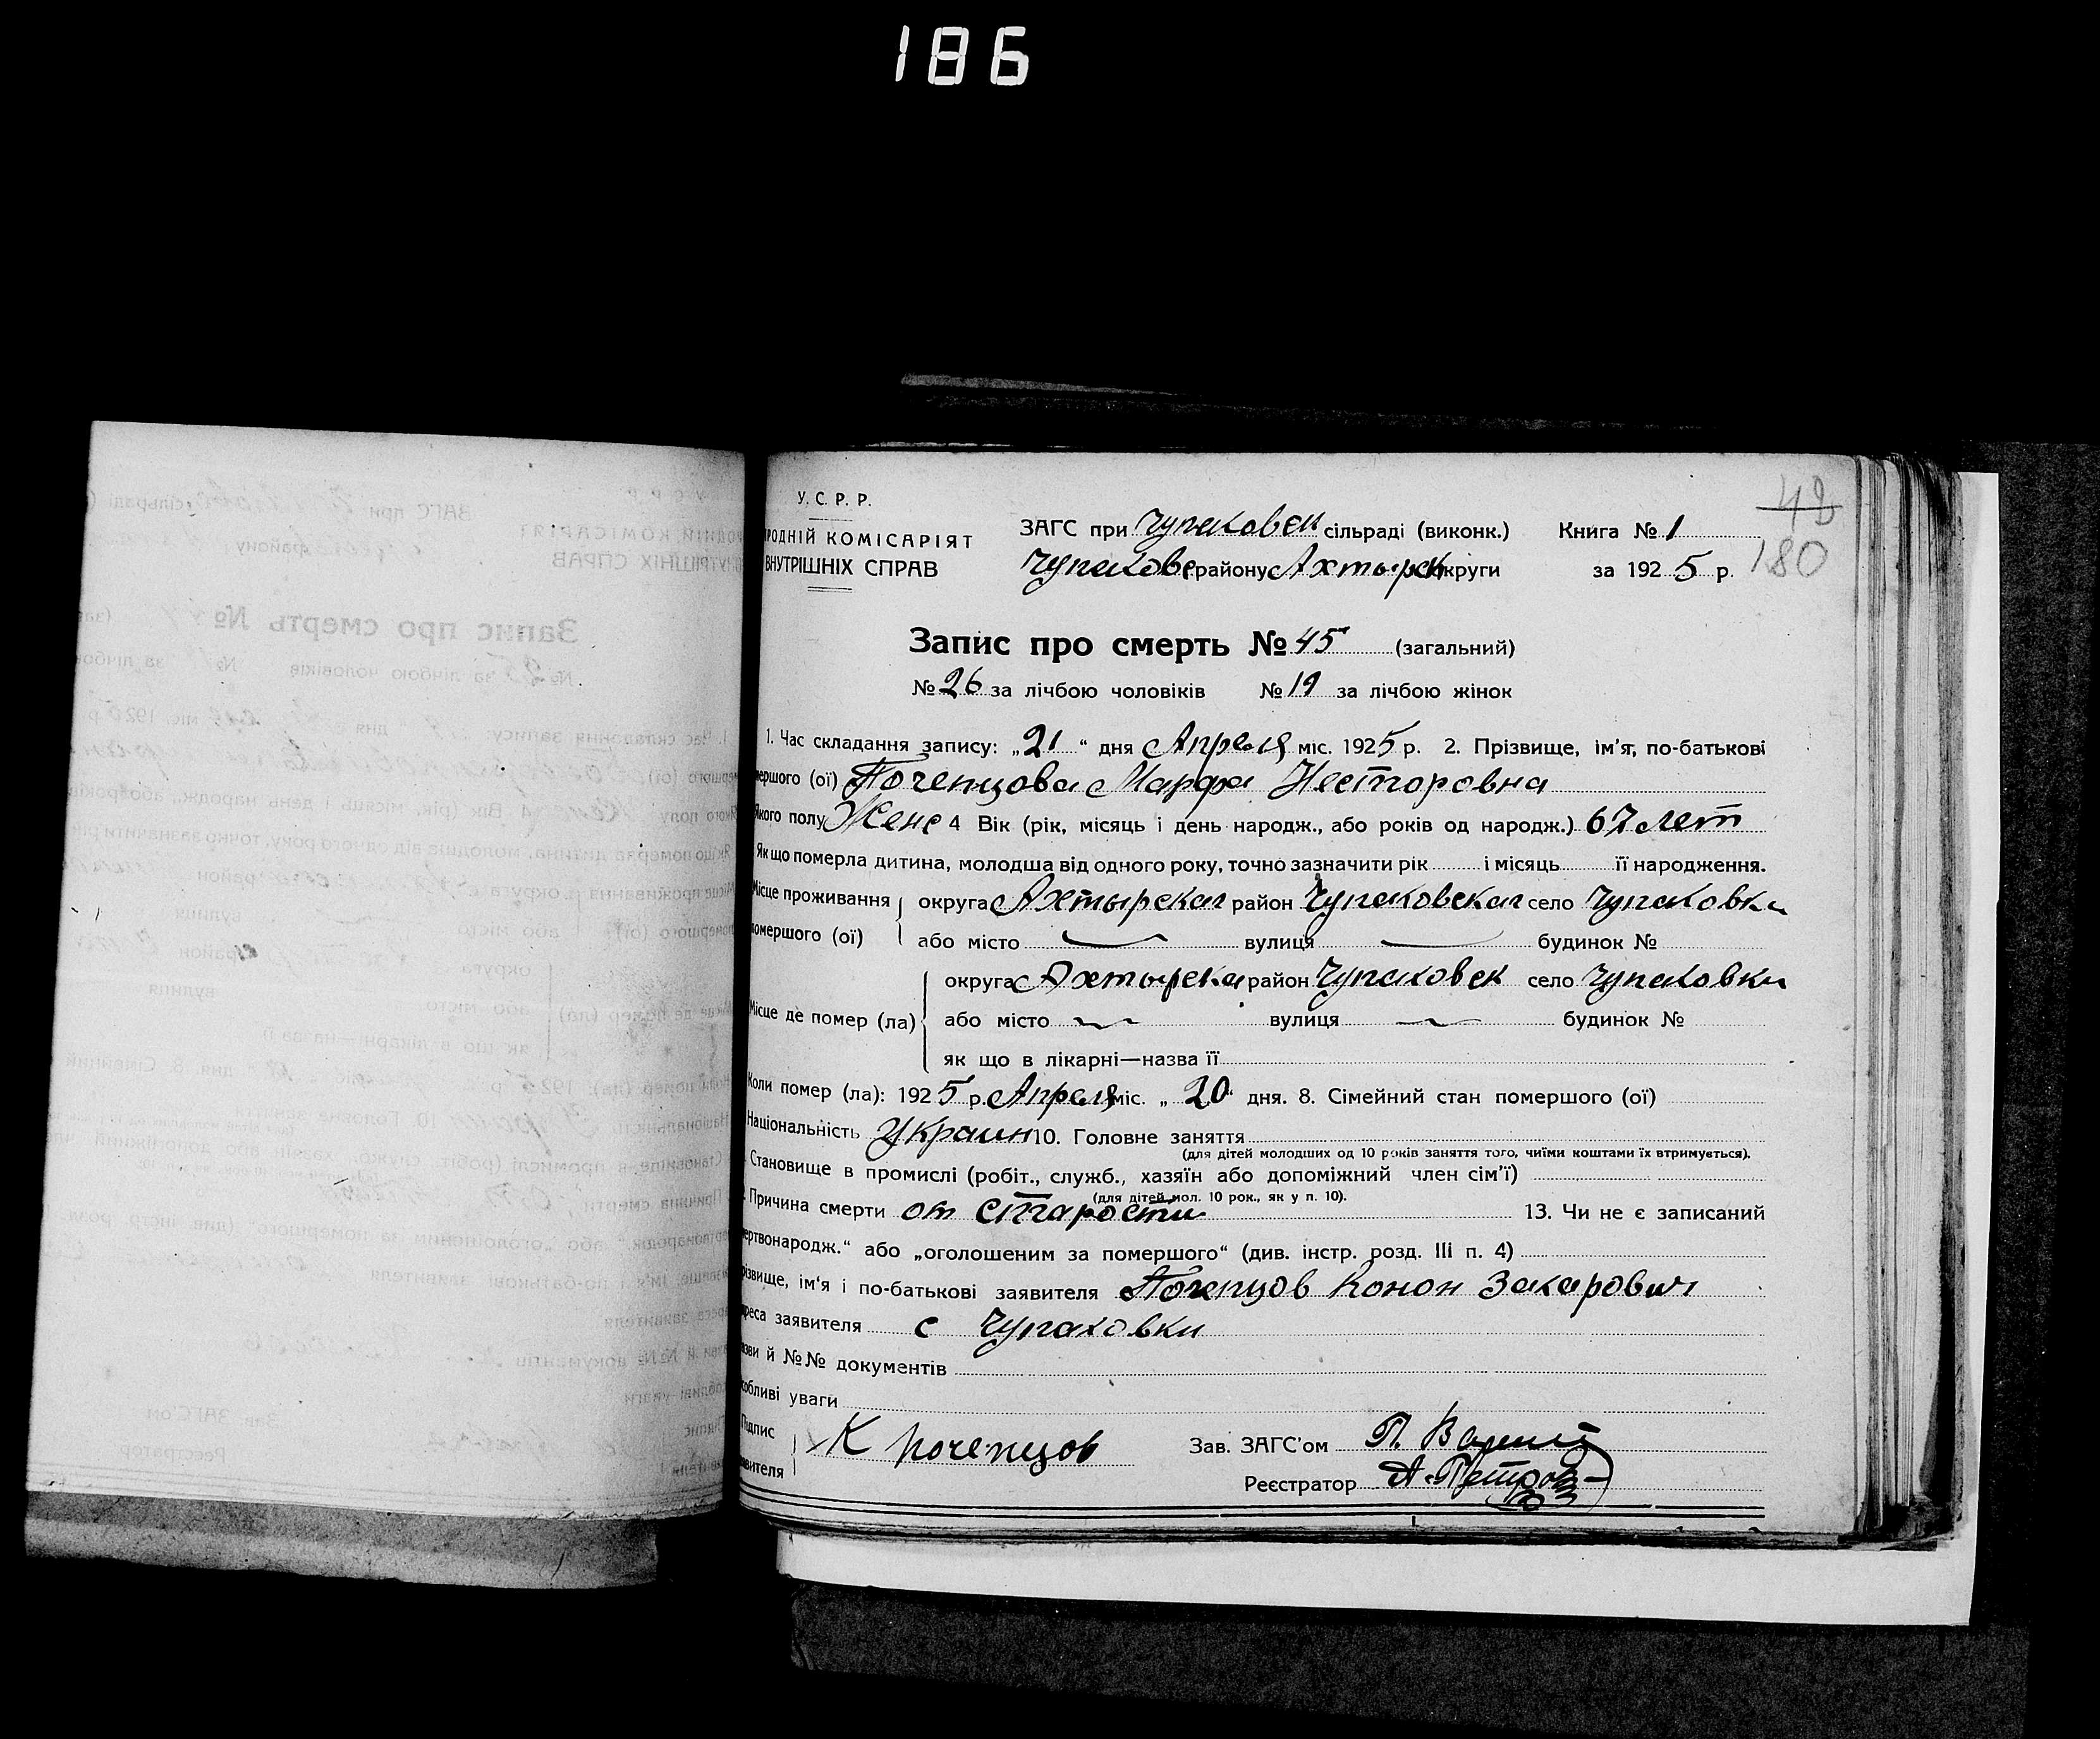 186
У. С. Р. Р.
РОДНІЙ КОМІСАРІЯТ
ВНУТРІШНІХ СПРАВ
ЗАГС при Чупаховск сільраді (виконк.) Книга № 1
Чупаховс району Ахтырск округи за 1925 р.
42
180
Запис про смерть № 45 (загальний)
№ 26 за лічбою чоловіків № 19 за лічбою жінок
1. Час складання запису: „21“ дня Апреля міс. 1925 р. 2. Прізвище, ім'я, по-батькові
мершого (ої) Почепцова Марфа Несторовна
Якого полу Женс 4 Вік (рік, місяць і день народж., або років од народж.) 67 лет
Як що померла дитина, молодша від одного року, точно зазначити рік і місяць її народження.
Місце проживання округа Ахтырская район Чупаховская село Чупаховка
помершого (ої) або місто вулиця будинок №
округа Ахтырска район Чупаховск село Чупаховка
Місце де помер (ла) або місто вулиця будинок №
як що в лікарні—назва її
Коли помер (ла): 1925 р. Апреля міс. „20“ дня. 8. Сімейний стан помершого (ої)
Національність Украин 10. Головне заняття
(для дітей молодших од 10 років заняття того, чиїми коштами їх втримується).
Становище в промислі (робіт., служб., хазяїн або допоміжний член сім'ї)
(для дітей мол. 10 рок., як у п. 10).
Причина смерти от старости 13. Чи не є записаний
ертвонародж.“ або „оголошеним за помершого“ (див. інстр. розд. III п. 4)
різвище, ім'я і по-батькові заявителя Почепцов Конон Захарович
реса заявителя с Чупаховки
зви й №№ документів
собливі уваги
Підпис
явителя К Почепцов Зав. ЗАГС'ом П.
Реєстратор А. Петров